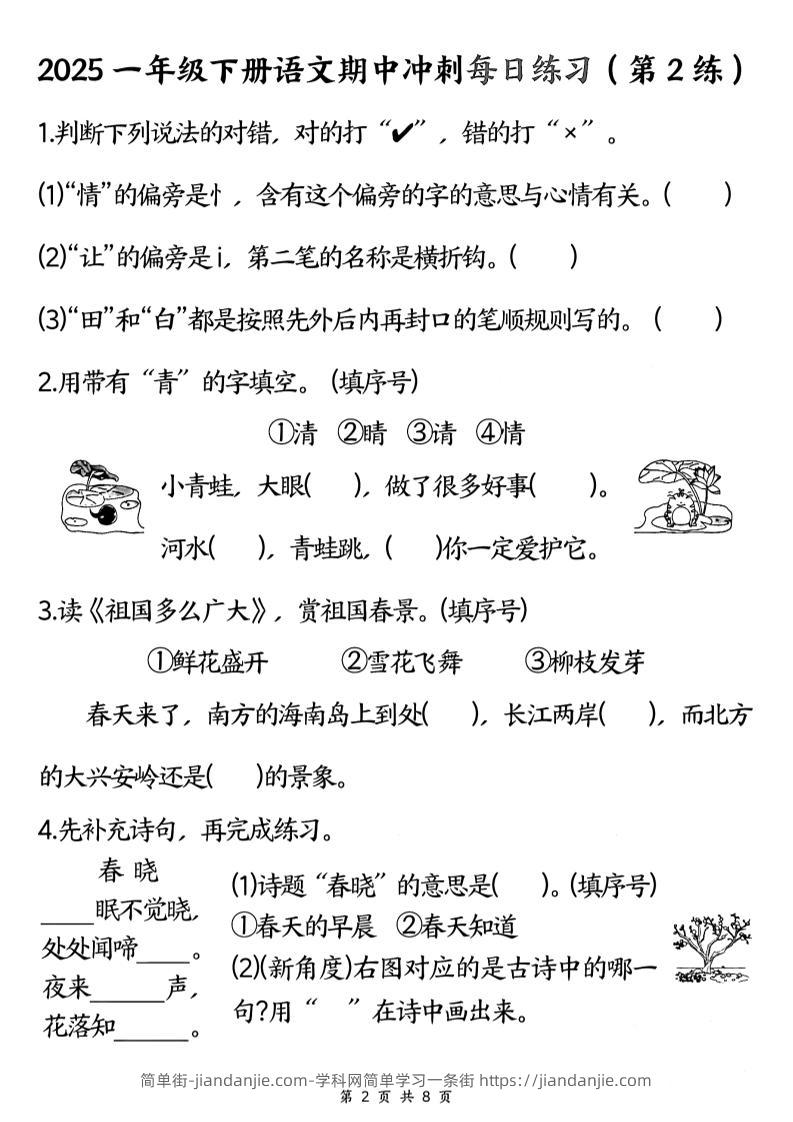 2025 一年级下册语文期中冲刺每日练习（第 2 练）
1.判断下列说法的对错，对的打“✔”，错的打“×”。
(1)“情”的偏旁是忄，含有这个偏旁的字的意思与心情有关。(  )
(2)“让”的偏旁是i，第二笔的名称是横折钩。(  )
(3)“田”和“白”都是按照先外后内再封口的笔顺规则写的。(  )
2.用带有“青”的字填空。(填序号)
①清 ②睛 ③请 ④情
小青蛙，大眼(  )，做了很多好事(  )。
河水(  )，青蛙跳，(  )你一定爱护它。
3.读《祖国多么广大》，赏祖国春景。(填序号)
①鲜花盛开 ②雪花飞舞 ③柳枝发芽
春天来了，南方的海南岛上到处(  )，长江两岸(  )，而北方
的大兴安岭还是(  )的景象。
4.先补充诗句，再完成练习。
春 晓
____眠不觉晓，
处处闻啼____。
夜来______声，
花落知______。
(1)诗题“春晓”的意思是(  )。(填序号)
①春天的早晨 ②春天知道
(2)(新角度)右图对应的是古诗中的哪一
句?用“  ”在诗中画出来。
简单街-jiandanjie.com-学科网简单学习一条街 https://jiandanjie.com
第 2 页 共 8 页